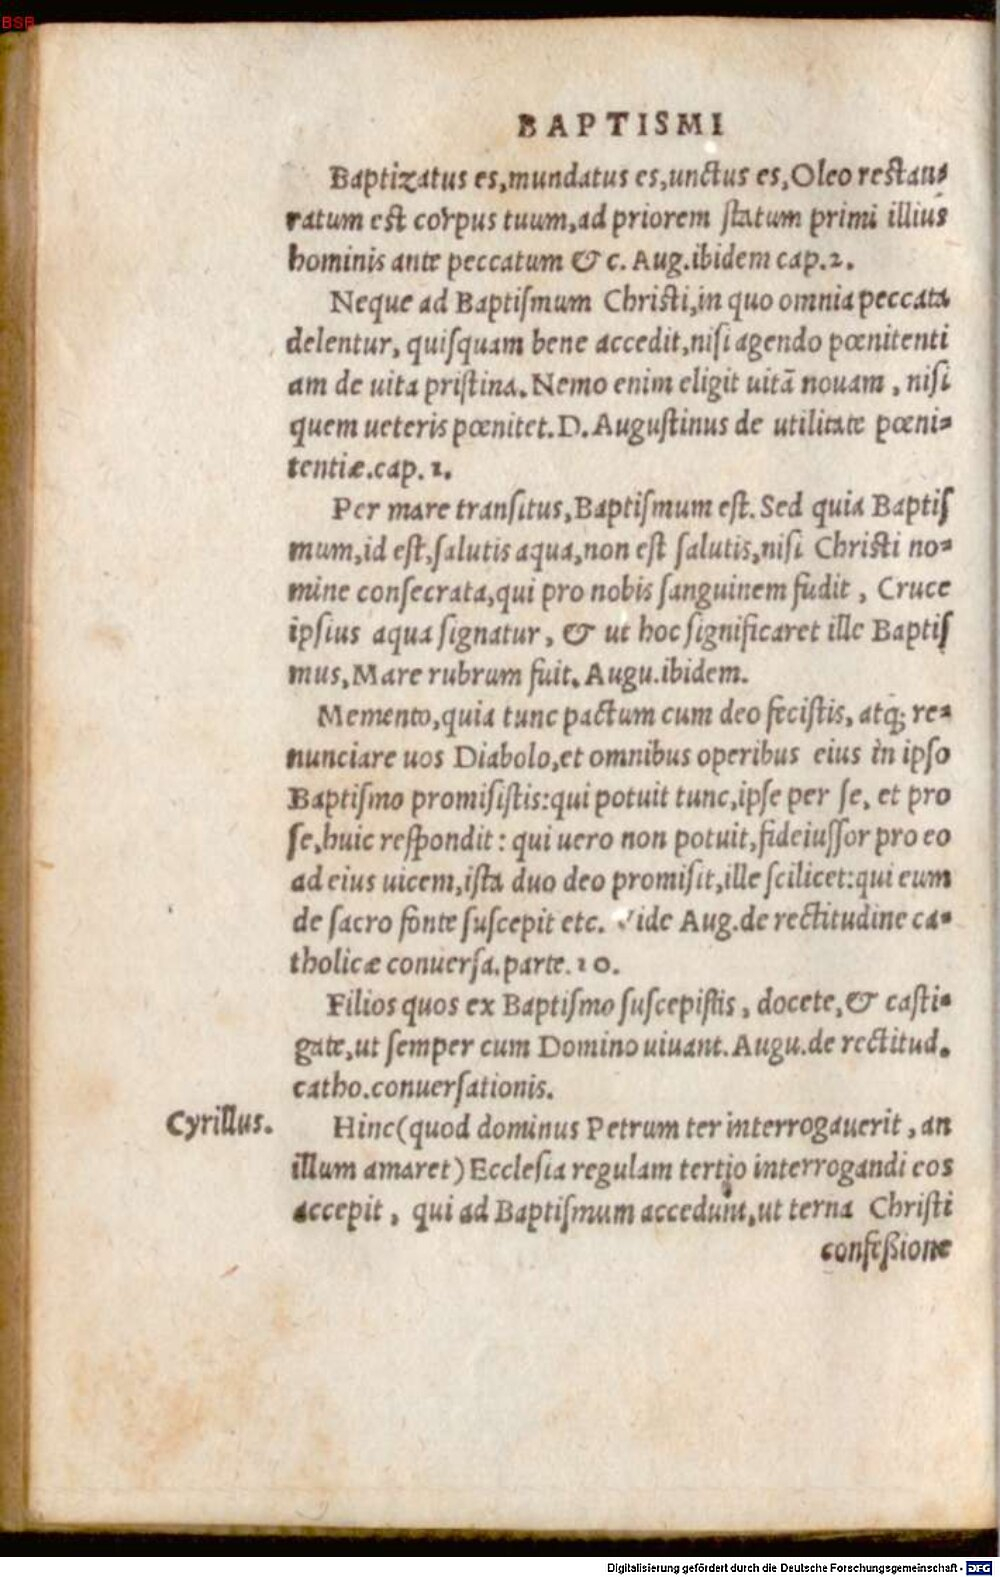 BSB
BAPTISMI
Baptizatus es, mundatus es, unctus es, Oleo restau⸗
ratum est corpus tuum, ad priorem ſtatum primi illius
hominis ante peccatum & c. Aug. ibidem cap. 2.
Neque ad Baptiſmum Christi, in quo omnia peccata
delentur, quiſquam bene accedit, niſi agendo pœnitenti
am de uita priſtina. Nemo enim eligit uitã nouam, niſi
quem ueteris pœnitet. D. Auguſtinus de utilitate pœni⸗
tentiæ. cap. 1.
Per mare tranſitus, Baptiſmum eſt. Sed quia Baptiſ
mum, id eſt, ſalutis aqua, non est ſalutis, niſi Christi no⸗
mine conſecrata, qui pro nobis ſanguinem fudit, Cruce
ipſius aqua ſignatur, & ut hoc ſignificaret ille Baptiſ
mus, Mare rubrum fuit. Augu. ibidem.
Memento, quia tunc pactum cum deo feciſtis, atq; re⸗
nunciare uos Diabolo, et omnibus operibus eius in ipſo
Baptiſmo promiſiſtis: qui potuit tunc, ipſe per ſe, et pro
ſe, huic reſpondit: qui uero non potuit, fideiuſſor pro eo
ad eius uicem, iſta duo deo promiſit, ille ſcilicet: qui eum
de ſacro fonte ſuſcepit etc. Vide Aug. de rectitudine ca⸗
tholicæ conuerſa. parte. 10.
Filios quos ex Baptiſmo ſuſcepiſtis, docete, & caſti⸗
gate, ut ſemper cum Domino uiuant. Augu. de rectitud.
catho. conuerſationis.
Cyrillus.
Hinc (quod dominus Petrum ter interrogauerit, an
illum amaret) Eccleſia regulam tertio interrogandi eos
accepit, qui ad Baptiſmum accedunt, ut terna Chriſti
confeßione
Digitalisierung gefördert durch die Deutsche Forschungsgemeinschaft - DFG